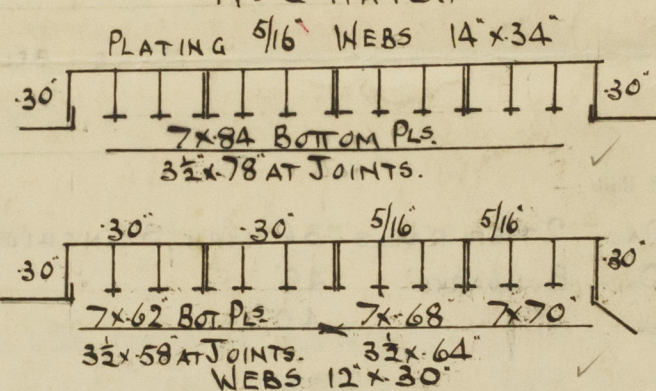 PLATING 5/16" WEBS 14" x .34"
.30" .30"
7 x .84 BOTTOM PLS.
3½" x .78" AT JOINTS.
.30" .30" 5/16" 5/16"
.30" .30"
7 x .62" BOT. PLS. 7 x .68 7 x .70"
3½ x .58" AT JOINTS. 3½ x .64"
WEBS 12" x .30"